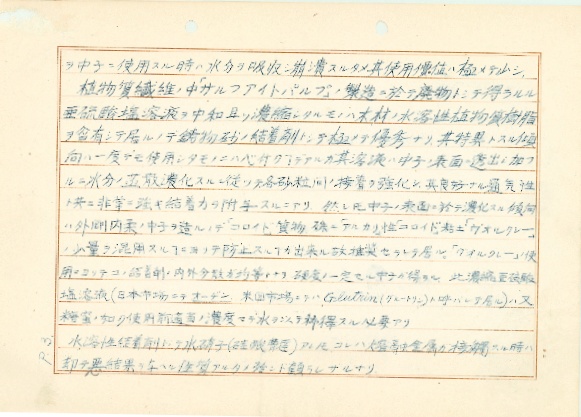 ヲ中子ニ使用スル時ハ水分ヲ吸収シ崩潰スルタメ其使用價値ハ極メテ少シ、
植物質纖維ノ中「サルファイトパルプ」ノ製造ニ於テ廢物トシテ得ラルル
亜硫酸塩溶液ヲ中和且ツ濃縮シタルモノハ木材ノ水溶性植物質樹脂
ヲ含有シテ居ルノデ鋳物砂ノ結着剤トシテ極メテ優秀ナリ、其特異トスル傾
向ハ一度デモ使用シタモノニハ アルカ其溶液ハ中子ノ表面ニ透出シ加フ
ルニ水分ノ蒸散濃化スルニ従ッテ各砂粒間ノ接着ガ強化シ其良好ナル通気性
ト共ニ非常ニ強キ結着力ヲ附与スルニアリ 然シ此中子ノ表面ニ於テ濃化スル傾向
ハ外剛内柔ノ中子ヲ造ルノデ「コロイド」質物 殊ニ「アルカリ」性「コロイド」粘土「ヴオルクレー」
ノ少量ヲ混用スルコトニヨッテ防止スル事ガ出来ル故推奨セラレテ居ル、「ヴオルクレー」使
用ニヨッテコノ結着剤ノ内外分散ガ均等トナリ硬度ノ一定セル中子ガ得ラル 此濃縮亜硫酸
塩溶液(日本市場ニテ 米国市場ニテハ Glutrin(グルートリン)ト呼バレテ居ル)ハ又
糖蜜ノ如ク使用前適当ノ濃度マデ水ヲ以テ稀釋スル必要アリ
水溶性結着剤トシテ水硝子(硅酸曹達)アルモコレハ熔融金属ガ接觸スル時ハ
却テ悪結果ヲ 性質アルタメ殆ント顧ラレザルナリ